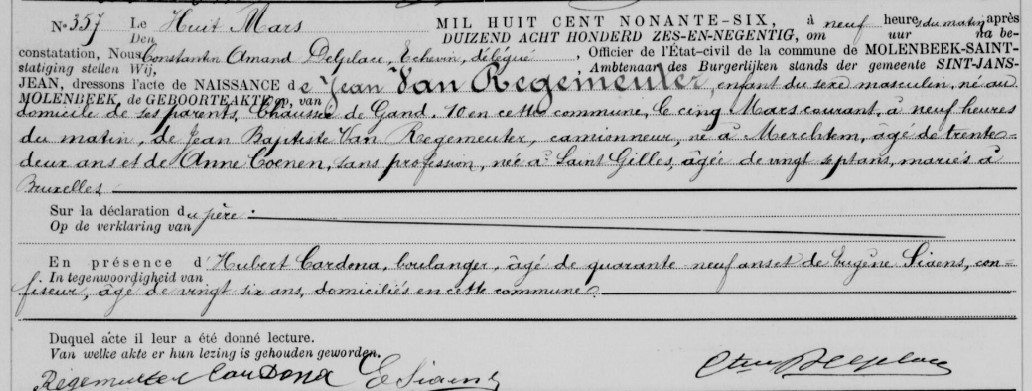 N° 357 Le Huit Mars MIL HUIT CENT NONANTE-SIX, à neuf heures du matin, après
Den DUIZEND ACHT HONDERD ZES-EN-NEGENTIG, om uur na be-
constatation, Nous Constantin Amand Delplace, Echevin, délégué, Officier de l'État-civil de la commune de MOLENBEEK-SAINT-
statiging stellen Wij, Ambtenaar des Burgerlijken stands der gemeente SINT-JANS-
JEAN, dressons l'acte de NAISSANCE de Jean Van Regemeuter, enfant du sexe masculin, né au
MOLENBEEK, de GEBOORTEAKTE op, van
domicile de ses parents, Chaussée de Gand, 10 en cette commune, le cinq Mars courant, à neuf heures
du matin, de Jean Baptiste Van Regemeuter, camionneur, né à Merchtem, âgé de trente-
deux ans et de Anne Coenen, sans profession, née à Saint Gilles, âgée de vingt sept ans, mariés à
Bruxelles
Sur la déclaration du père :
Op de verklaring van
En présence d'Hubert Cardona, boulanger, âgé de quarante neuf ans et de Eugène Siaens, con-
In tegenwoordigheid van
fiseur, âgé de vingt six ans, domiciliés en cette commune.
Duquel acte il leur a été donné lecture.
Van welke akte er hun lezing is gehouden geworden.
Regemeuter Cardona E Siaens